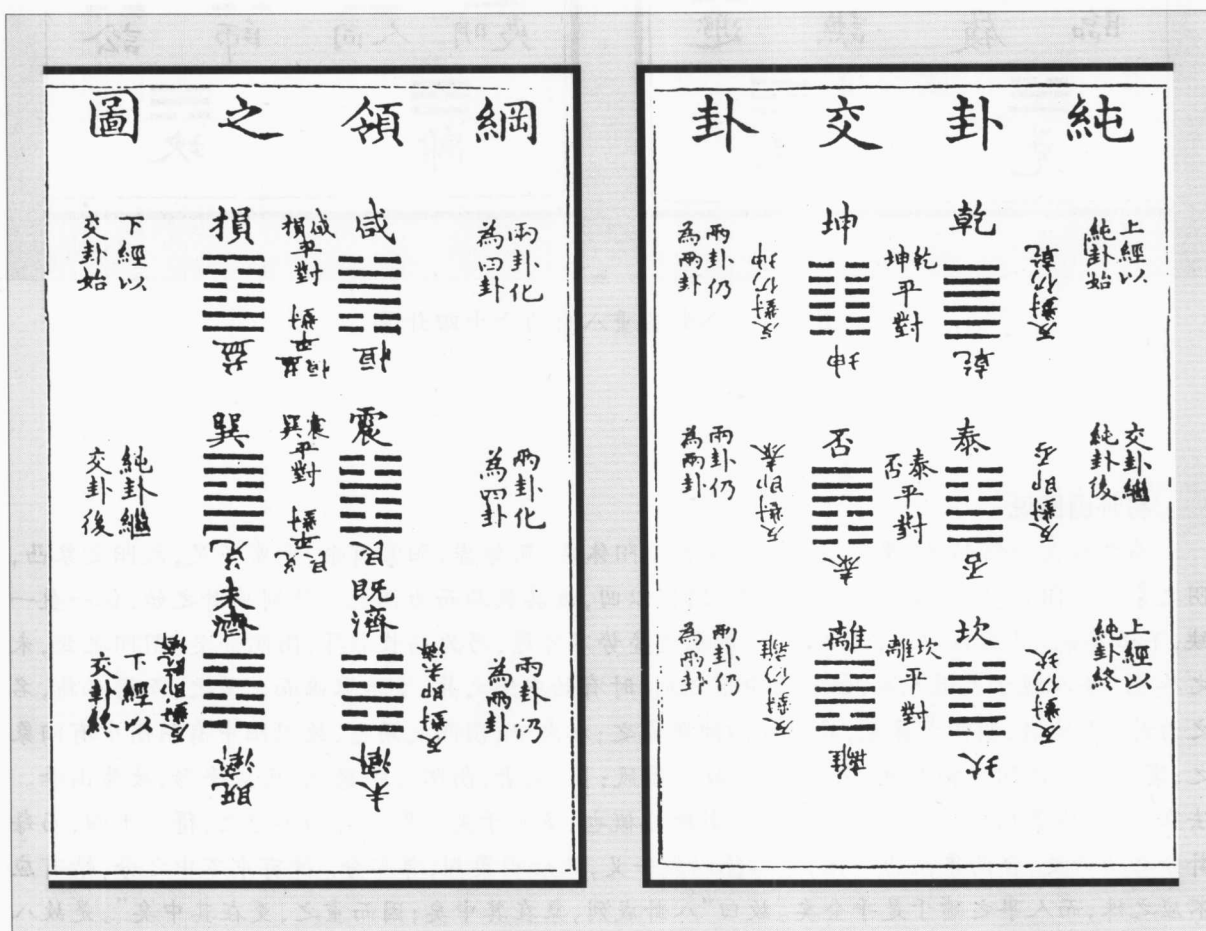 純卦交卦
上經以
純卦始
反對仍乾
乾
乾
乾坤平對
坤
坤
反對仍坤
兩卦仍
為兩卦
交卦繼
純卦後
反對即否
泰
否
泰否平對
否
泰
反對即泰
兩卦仍
為兩卦
上經以
純卦終
反對仍坎
坎
坎
坎離平對
離
離
反對仍離
兩卦仍
為兩卦
綱領之圖
兩卦化
為四卦
咸
恒
咸損平對
恒益平對
損
益
下經以
交卦始
兩卦化
為四卦
震
艮
震巽平對
艮兌平對
巽
兌
純卦繼
交卦後
兩卦仍
為兩卦
反對即未濟
既濟
未濟
未濟
既濟
反對即既濟
下經以
交卦終